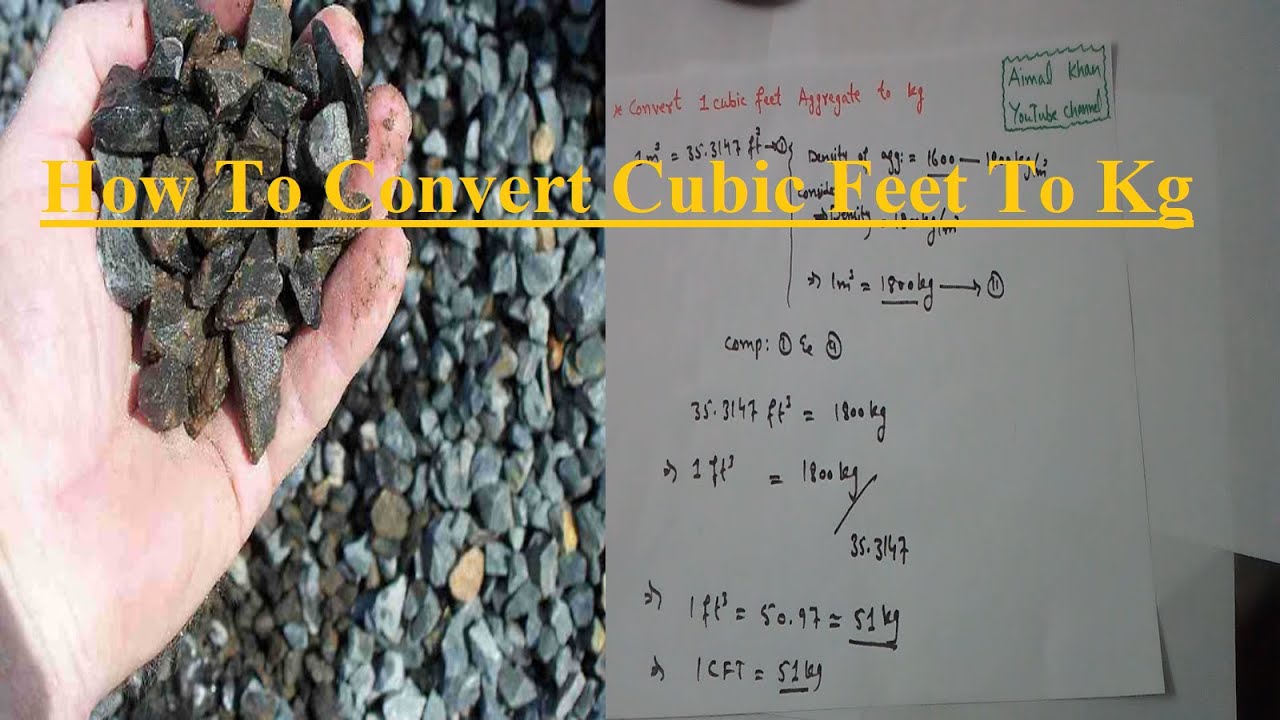 How To Convert Cubic Feet To Kg
Aimal Khan
YouTube Channel
* Convert 1 cubic feet Aggregate to kg
1m³ = 35.3147 ft³ → ①
Density of agg: = 1600 — 1800 kg/m³
Consider
⇒ Density = 1800 kg/m³
⇒ 1m³ = 1800 kg → ⑪
Comp: ① & ⑪
35.3147 ft³ = 1800 kg
⇒ 1 ft³ = 1800 kg /
35.3147
⇒ 1 ft³ = 50.97 = 51 kg
⇒ 1 CFT = 51 kg